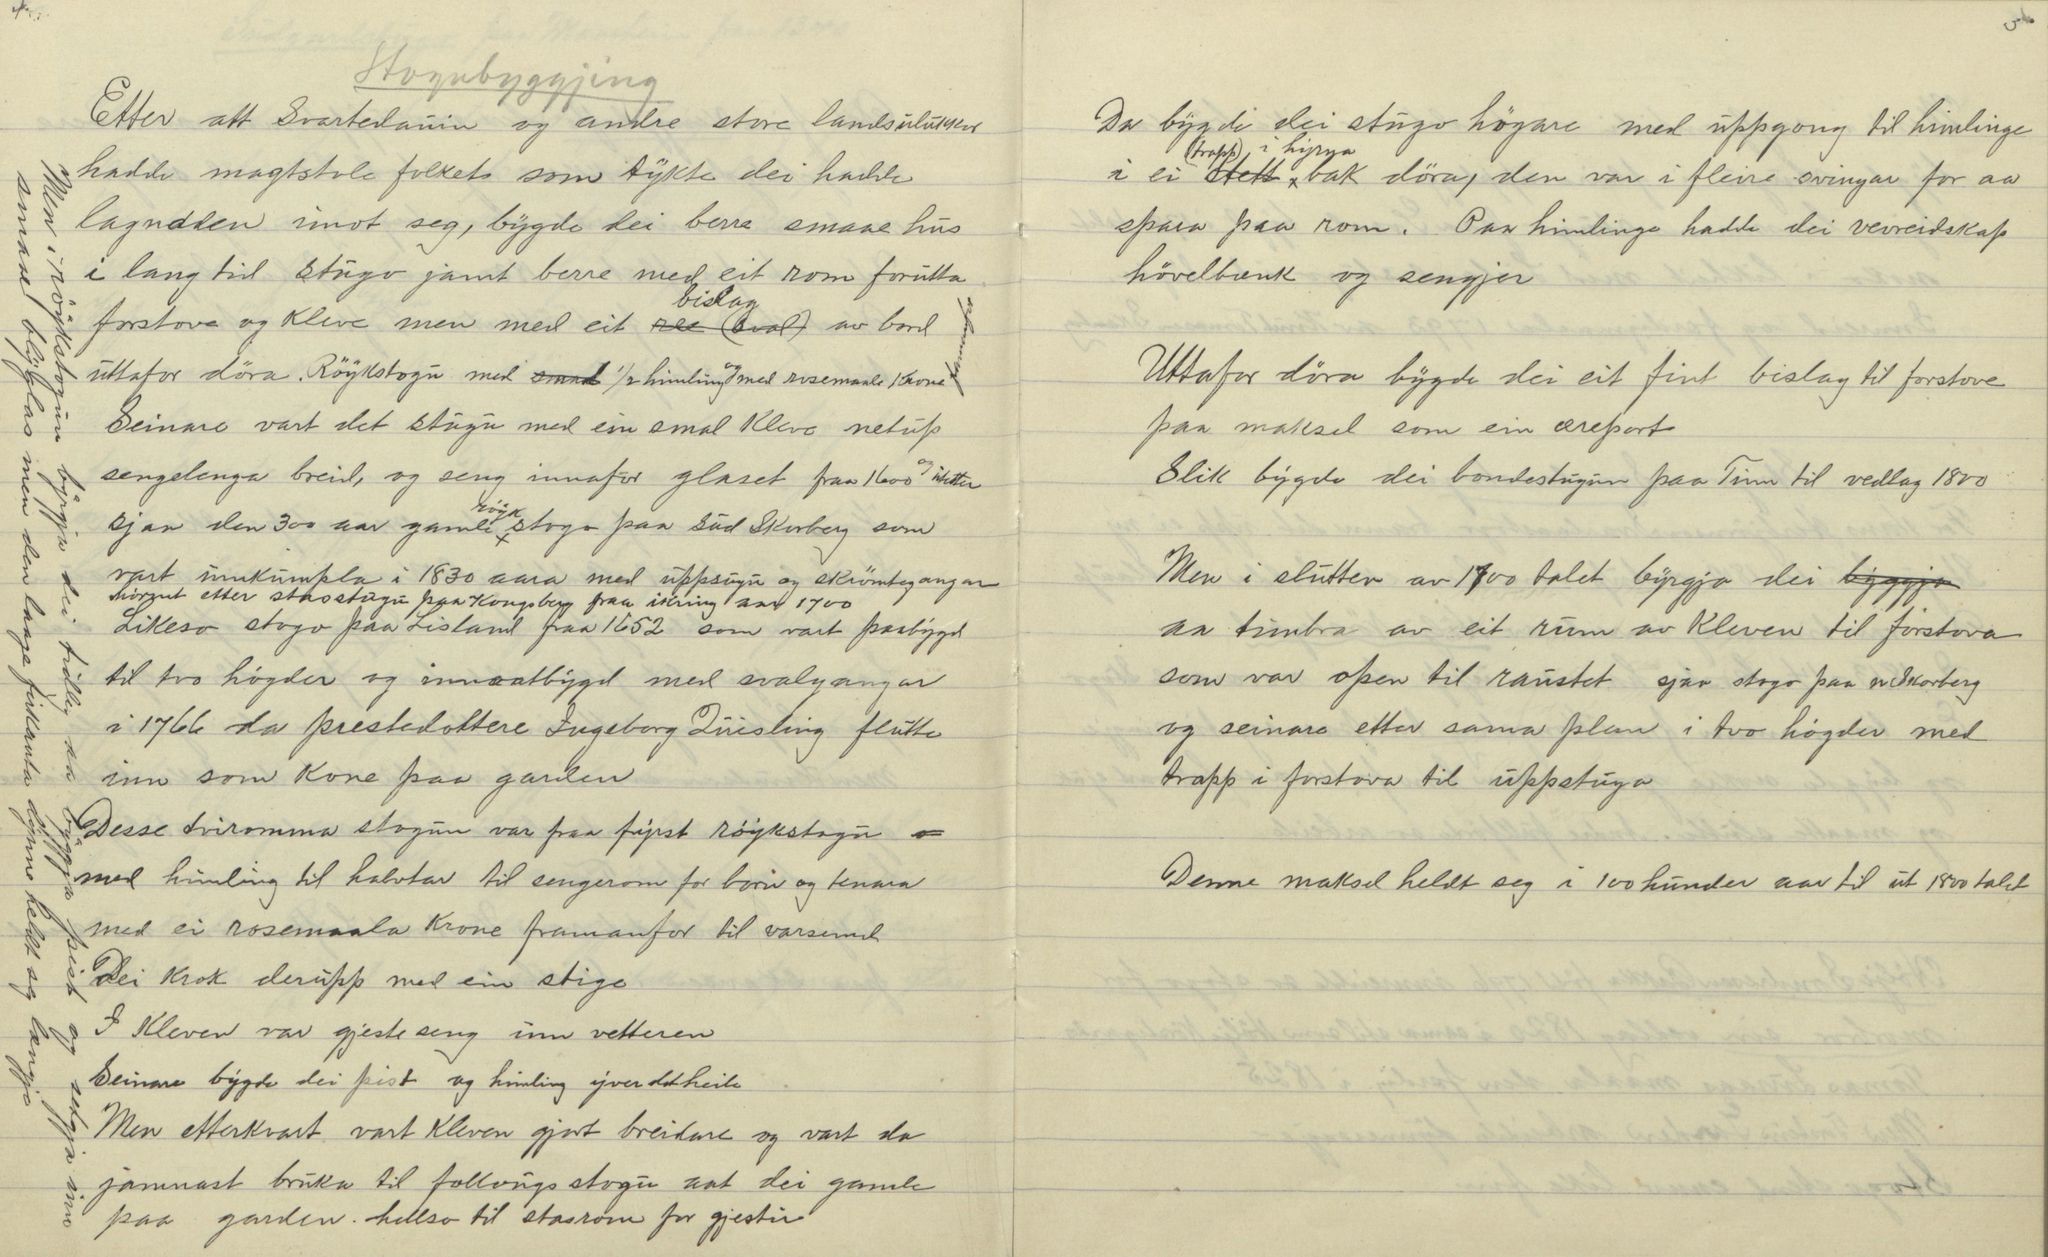 Stogubyggjing
Etter att Svartedauin og andre store landsulukkor
hadde magtstole folket som tykte dei hadde
lagnaden imot seg, bygde dei berre smaae hus
i lang tid stugo jamt berre med eit rom forutta
forstova og Kleve men med eit bislag (sval) av bord
uttafor döra. Röykstogu med smal 1/2 himling og med rosemaala Krone
Seinare vart det stugu med ein smal Kleve netup
sengelenga breid, og seng innafor glaset fraa 1600 og utetter
sjaa den 300 aar gamle röyk stogo paa Sud Skorberg som
vart umkumpla i 1830 aara med uppsugu og skrömtegangar
hirgut etter stasstugu paa Kongsberg fraa ikring aar 1700
Likeso stogo paa Lisland fraa 1652 som vart paabygd
til tvo högder og innaatbygd med svalgangar
i 1766 da prestedottere Ingeborg Quisling flutte
inn som Kone paa garden
Desse tviromma stogun var fraa fyrst röykstogu
med himling til halvtar til sengerom for born og tenara
med ei rosemaala Krone framanfor til varsemd
Dei Krok derupp med ein stige
I Kleven var gjesteseng inn vetteren
Seinare bygde dei peist og himling yver det heile
Men etterkvart vart Kleven gjort breidare og vart da
jamnast bruka til folkougsstogu aat dei gamle
paa garden. hellso til stasrom for gjestir
Men i röykstogun byrgja dei tidleg aa byggja peist og setja inn
smaae blyglas men den laage firkanta ljorne heldt seg lengje
3
Da bygde dei stugo högare med uppgong til himlinge
(trapp) i hyrna
i ei stett bak döra, den var i fleire svingar for aa
spara paa rom. Paa himlinge hadde dei vevreidskap
hövelbenk og sengjer
Uttafor döra bygde dei eit fint bislag til forstove
paa maksel som ein æreport
Slik bygde dei bondestugun paa Tinn til vedlag 1800
Men i slutten av 1700 talet byrgja dei byggja
aa timbra av eit rum av Kleven til forstova
som var open til raustet sjaa stogo paa n. Skorberg
og seinare etter sama plan i tvo högder med
trapp i forstova til uppstuga
Denne maksel heldt seg i 100 hunder aar til ut 1800 talet